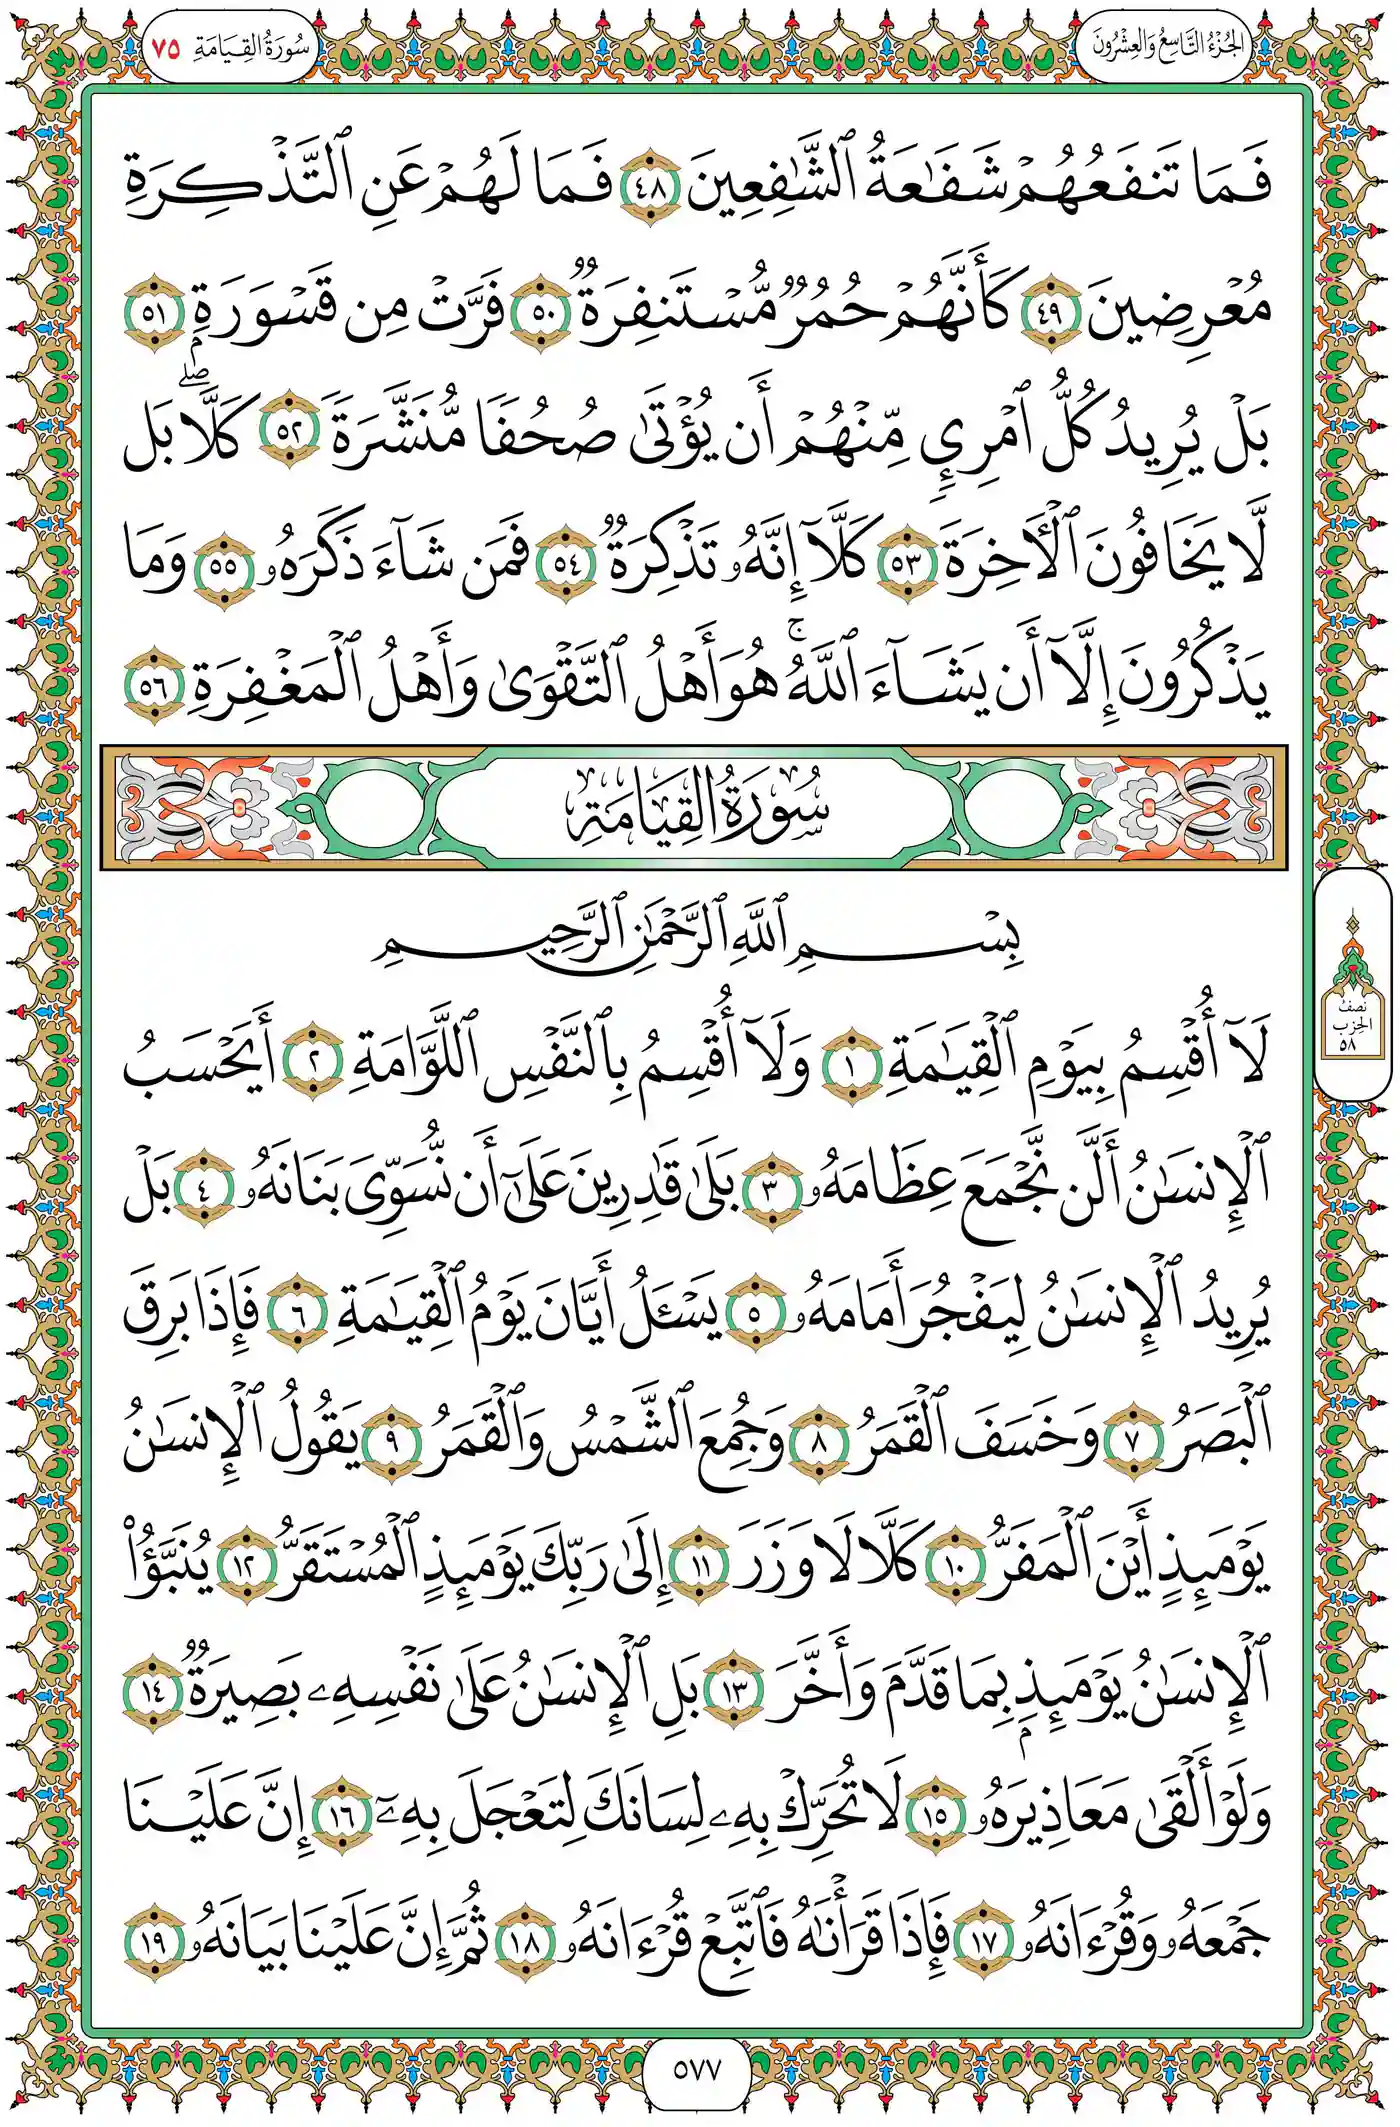 سُورَةُ القِيَامَةِ ٧٥
الجُزْءُ التَّاسِعُ وَالعِشْرُونَ
فَمَا تَنفَعُهُمْ شَفَٰعَةُ ٱلشَّٰفِعِينَ ٤٨ فَمَا لَهُمْ عَنِ ٱلتَّذْكِرَةِ
مُعْرِضِينَ ٤٩ كَأَنَّهُمْ حُمُرٌ مُّسْتَنفِرَةٌ ٥٠ فَرَّتْ مِن قَسْوَرَةِۭ ٥١
بَلْ يُرِيدُ كُلُّ ٱمْرِئٍ مِّنْهُمْ أَن يُؤْتَىٰ صُحُفًا مُّنَشَّرَةً ٥٢ كَلَّاۖ بَل
لَّا يَخَافُونَ ٱلْأَخِرَةَ ٥٣ كَلَّآ إِنَّهُۥ تَذْكِرَةٌ ٥٤ فَمَن شَآءَ ذَكَرَهُۥ ٥٥ وَمَا
يَذْكُرُونَ إِلَّآ أَن يَشَآءَ ٱللَّهُۚ هُوَ أَهْلُ ٱلتَّقْوَىٰ وَأَهْلُ ٱلْمَغْفِرَةِ ٥٦
سُورَةُ القِيَامَةِ
بِسْمِ ٱللَّهِ ٱلرَّحْمَٰنِ ٱلرَّحِيمِ
لَآ أُقْسِمُ بِيَوْمِ ٱلْقِيَٰمَةِ ١ وَلَآ أُقْسِمُ بِٱلنَّفْسِ ٱللَّوَّامَةِ ٢ أَيَحْسَبُ
ٱلْإِنسَٰنُ أَلَّن نَّجْمَعَ عِظَامَهُۥ ٣ بَلَىٰ قَٰدِرِينَ عَلَىٰٓ أَن نُّسَوِّىَ بَنَانَهُۥ ٤ بَلْ
يُرِيدُ ٱلْإِنسَٰنُ لِيَفْجُرَ أَمَامَهُۥ ٥ يَسْـَٔلُ أَيَّانَ يَوْمُ ٱلْقِيَٰمَةِ ٦ فَإِذَا بَرِقَ
ٱلْبَصَرُ ٧ وَخَسَفَ ٱلْقَمَرُ ٨ وَجُمِعَ ٱلشَّمْسُ وَٱلْقَمَرُ ٩ يَقُولُ ٱلْإِنسَٰنُ
يَوْمَئِذٍ أَيْنَ ٱلْمَفَرُّ ١٠ كَلَّا لَا وَزَرَ ١١ إِلَىٰ رَبِّكَ يَوْمَئِذٍ ٱلْمُسْتَقَرُّ ١٢ يُنَبَّؤُا۟
ٱلْإِنسَٰنُ يَوْمَئِذِۭ بِمَا قَدَّمَ وَأَخَّرَ ١٣ بَلِ ٱلْإِنسَٰنُ عَلَىٰ نَفْسِهِۦ بَصِيرَةٌ ١٤
وَلَوْ أَلْقَىٰ مَعَاذِيرَهُۥ ١٥ لَا تُحَرِّكْ بِهِۦ لِسَانَكَ لِتَعْجَلَ بِهِۦٓ ١٦ إِنَّ عَلَيْنَا
جَمْعَهُۥ وَقُرْءَانَهُۥ ١٧ فَإِذَا قَرَأْنَٰهُ فَٱتَّبِعْ قُرْءَانَهُۥ ١٨ ثُمَّ إِنَّ عَلَيْنَا بَيَانَهُۥ ١٩
نصف
الحزب
٥٨
٥٧٧